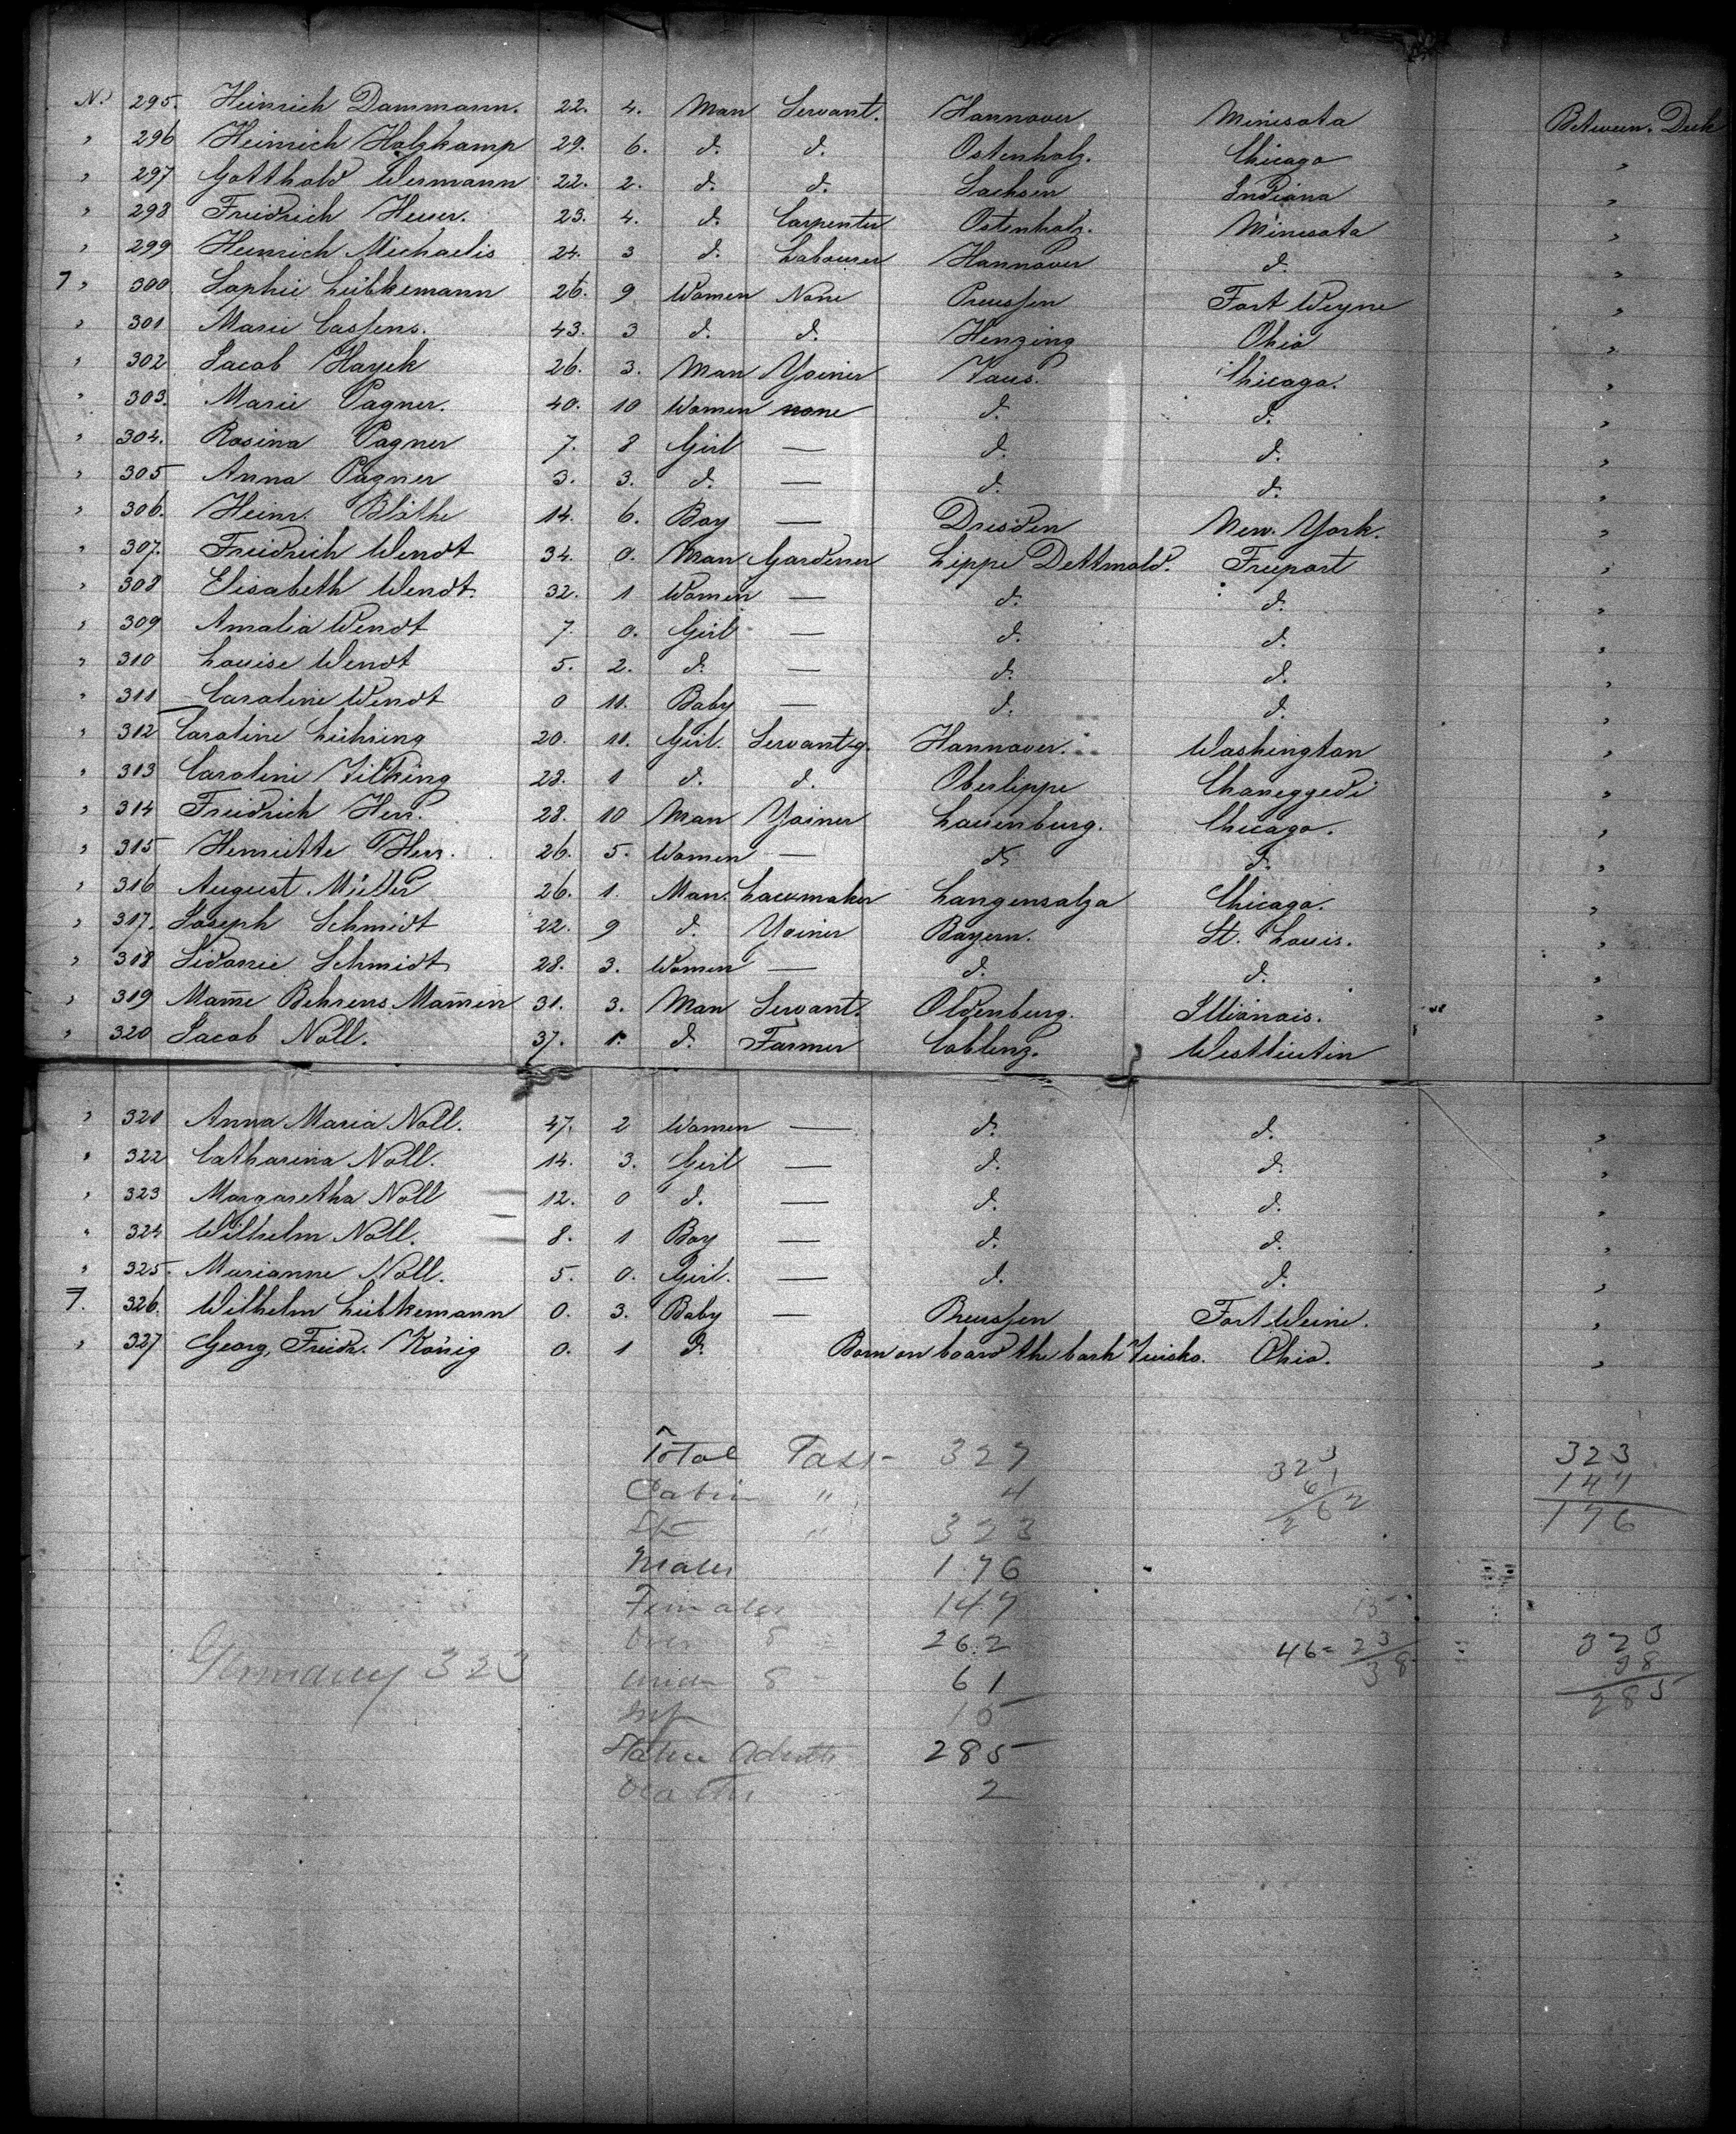 N. 295. Heinrich Dammann. 22. 4. Man Servant. Hannover Minesota Between. Deck
" 296 Heinrich Holzkamp 29. 6. d. d. Ostenholz. Chicago "
" 297 Gotthold Wermann 22. 2. d. d. Sachsen Indiana "
" 298 Friedrich Heuer. 23. 4. d. Carpenter Ostenholz. Minesota "
" 299 Heinrich Michaelis 24. 3 d. Labourer Hannover d. "
7 " 300. Sophie Lübkemann 26. 9 Women None Preussen Fort Weyne "
" 301 Marie Cassens. 43. 3 d. d. Henzing Ohio "
" 302 Jacob Hayek 26. 3. Man Yoiner Vaus. Chicago. "
" 303. Marie Pagner. 40. 10 Women none d. d. "
" 304. Rosina Pagner 7. 8 Girl — d. d. "
" 305 Anna Pagner 3. 3. d. — d. d. "
" 306. Heinr. Bläthe 14. 6. Boy — Dresden New. York. "
" 307. Freidrich Wendt 34. 0. Man Gardener Lippe Dettmold. Freeport "
" 308 Elisabeth Wendt. 32. 1 Women — d. d. "
" 309 Amalia Wendt 7. 0. Girl — d. d. "
" 310 Louise Wendt 5. 2. d. — d. d. "
" 311 Caroline Wendt 0 11. Baby — d. d. "
" 312 Caroline Lühring 20. 11. Girl. Servant-g. Hannover. Washington "
" 313 Caroline Vilking 28. 1 d. d. Oberlippe Chaneggedi "
" 314 Freidrich Herr. 28. 10 Man Yoiner Lauenburg. Chicago. "
" 315 Henriette Herr. 26. 5. Women — d. d. "
" 316 August. Müller 26. 1. Man. Lacemaker Langensalza Chicago. "
" 317. Joseph Schmidt 22. 9 d. Yoiner Bayern. St. Louis. "
" 318 Sidonie Schmidt 28. 3. Women — d. d. "
" 319 Mam̅e Behrens Mam̅en 31. 3. Man Servant. Oldenburg. Illionois. "
" 320 Jacob Noll. 37. 1. d. Farmer Coblenz.
" 321 Anna Maria Noll. 47. 2 Women — d. d. "
" 322 Catharina Noll. 14. 3. Girl — d. d. "
" 323 Margaretha Noll 12. 0 d. — d. d. "
" 324 Wilhelm Noll. 8. 1 Boy — d. d. "
" 325. Marianne Noll. 5. 0. Girl. — d. d. "
7. 326. Wilhelm Lübkemann 0. 3. Baby — Preussen Fort Weine. "
" 327 Georg, Freidr. König 0. 1 d. Born on board the bark Tuisko. Ohio. "
Total Pass- 327 323 323
Cabin " 4 61 147
Stg " 323 262 176
Males 176
Females 147 15
Over 8 262 46 = 23 = 323
Germany 323
Under 8 61 38 38
Inf 15 285
Statue Adults 285
Deaths 2